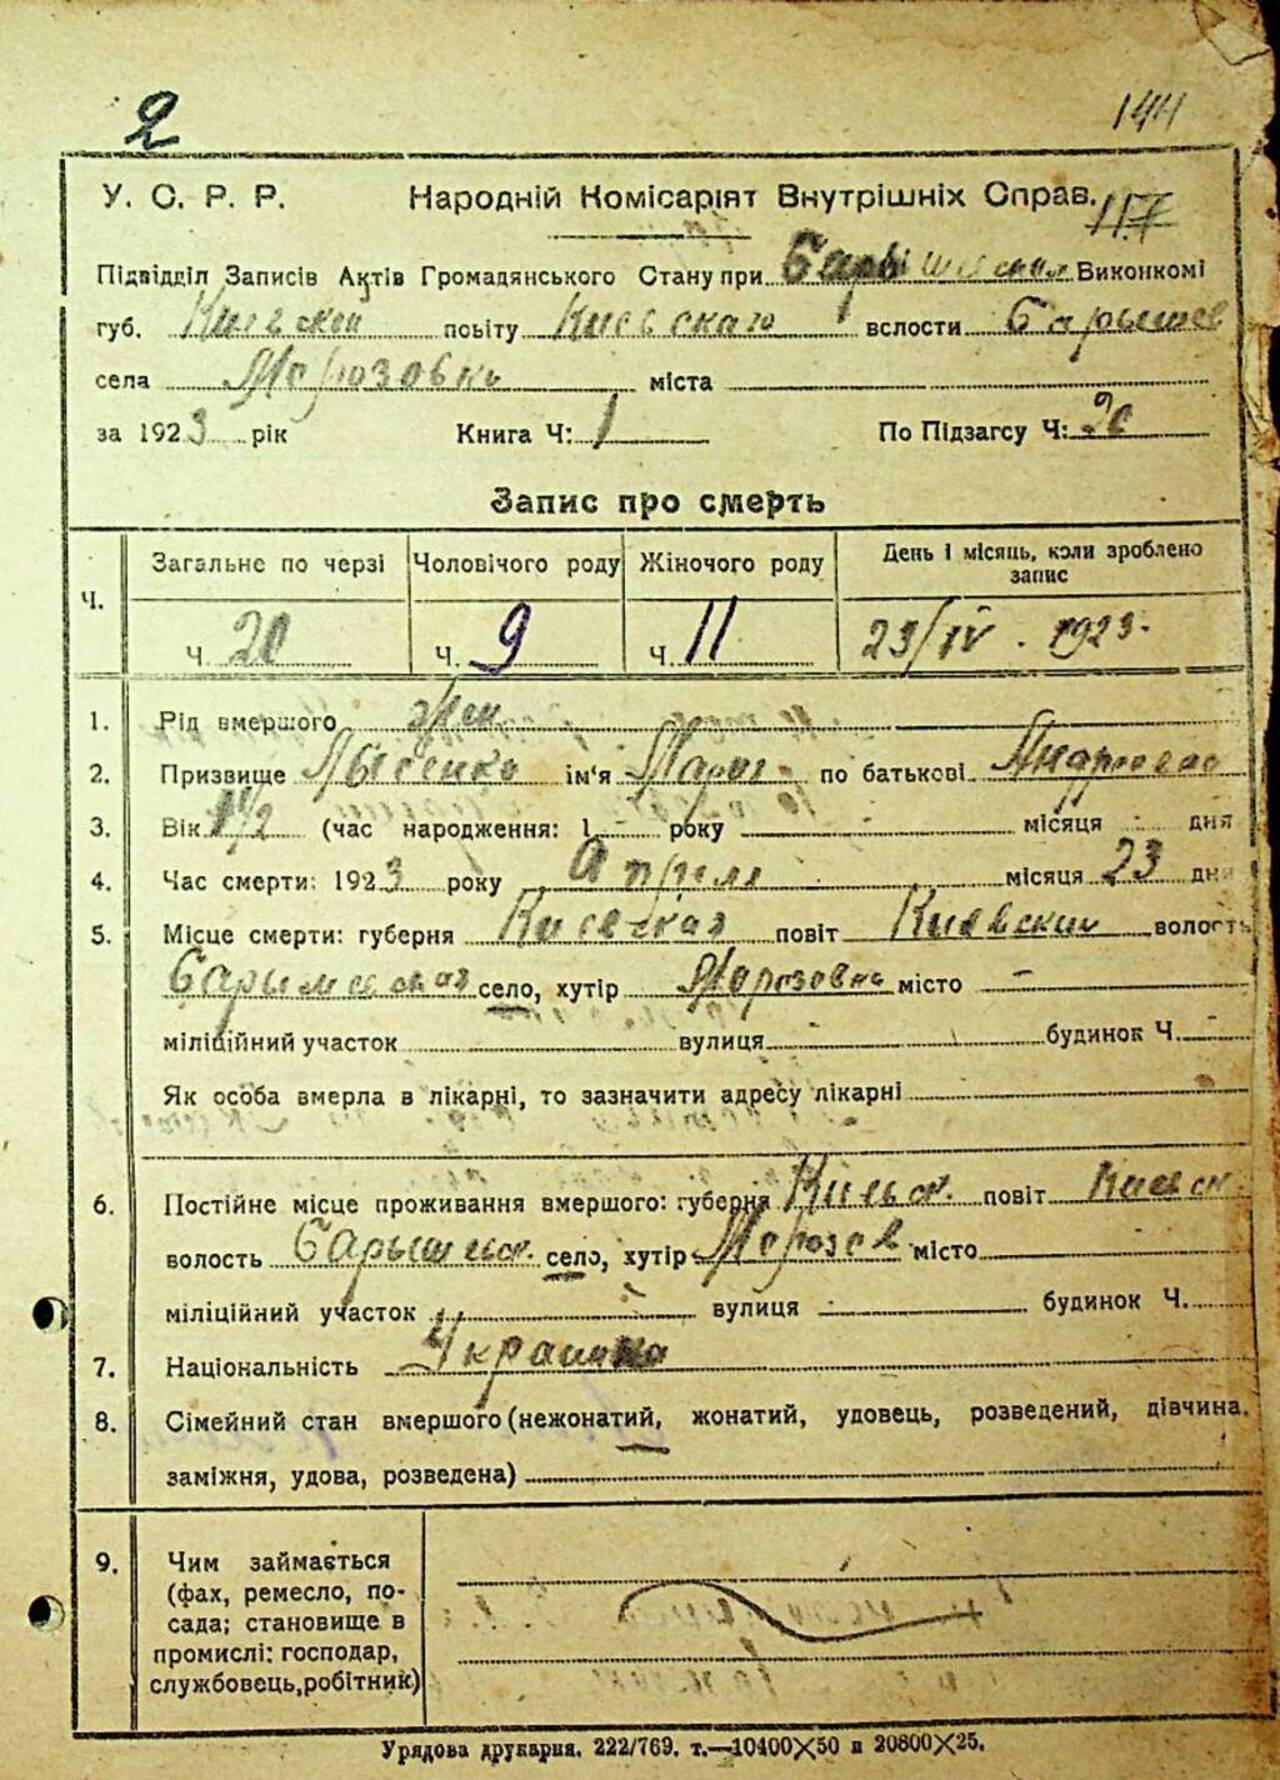 2
144
У. С. Р. Р. Народній Комісаріят Внутрішніх Справ.
117
Підвідділ Записів Актів Громадянського Стану при Барышевском Виконкомі
губ. Киевской повіту Киевскаго волости Барышев
села Морозовка міста
за 1923 рік Книга Ч: 1 По Підзагсу Ч: 20
Запис про смерть
Ч. Загальне по черзі Чоловічого роду Жіночого роду День і місяць, коли зроблено запис
Ч. 20 Ч. 9 Ч. 11 23/IV. 1923.
1. Рід вмершого Жен
2. Призвище Лысенко ім'я Мария по батькові
3. Вік 1 1/2 (час народження: 1 року місяця дня
4. Час смерти: 1923 року Апреля місяця 23 дня
5. Місце смерти: губерня Киевская повіт Киевский волость
Барышевская село, хутір Морозовка місто –
міліційний участок вулиця будинок Ч.
Як особа вмерла в лікарні, то зазначити адресу лікарні
6. Постійне місце проживання вмершого: губерня Киевск. повіт Киевск.
волость Барышевск. село, хутір Морозов місто
міліційний участок вулиця будинок Ч.
7. Національність Украинка
8. Сімейний стан вмершого (нежонатий, жонатий, удовець, розведений, дівчина,
заміжня, удова, розведена)
9. Чим займається
(фах, ремесло, по-
сада; становище в
промислі: господар,
службовець, робітник)
Урядова друкарня. 222/769. т.—10400X50 и 20800X25.